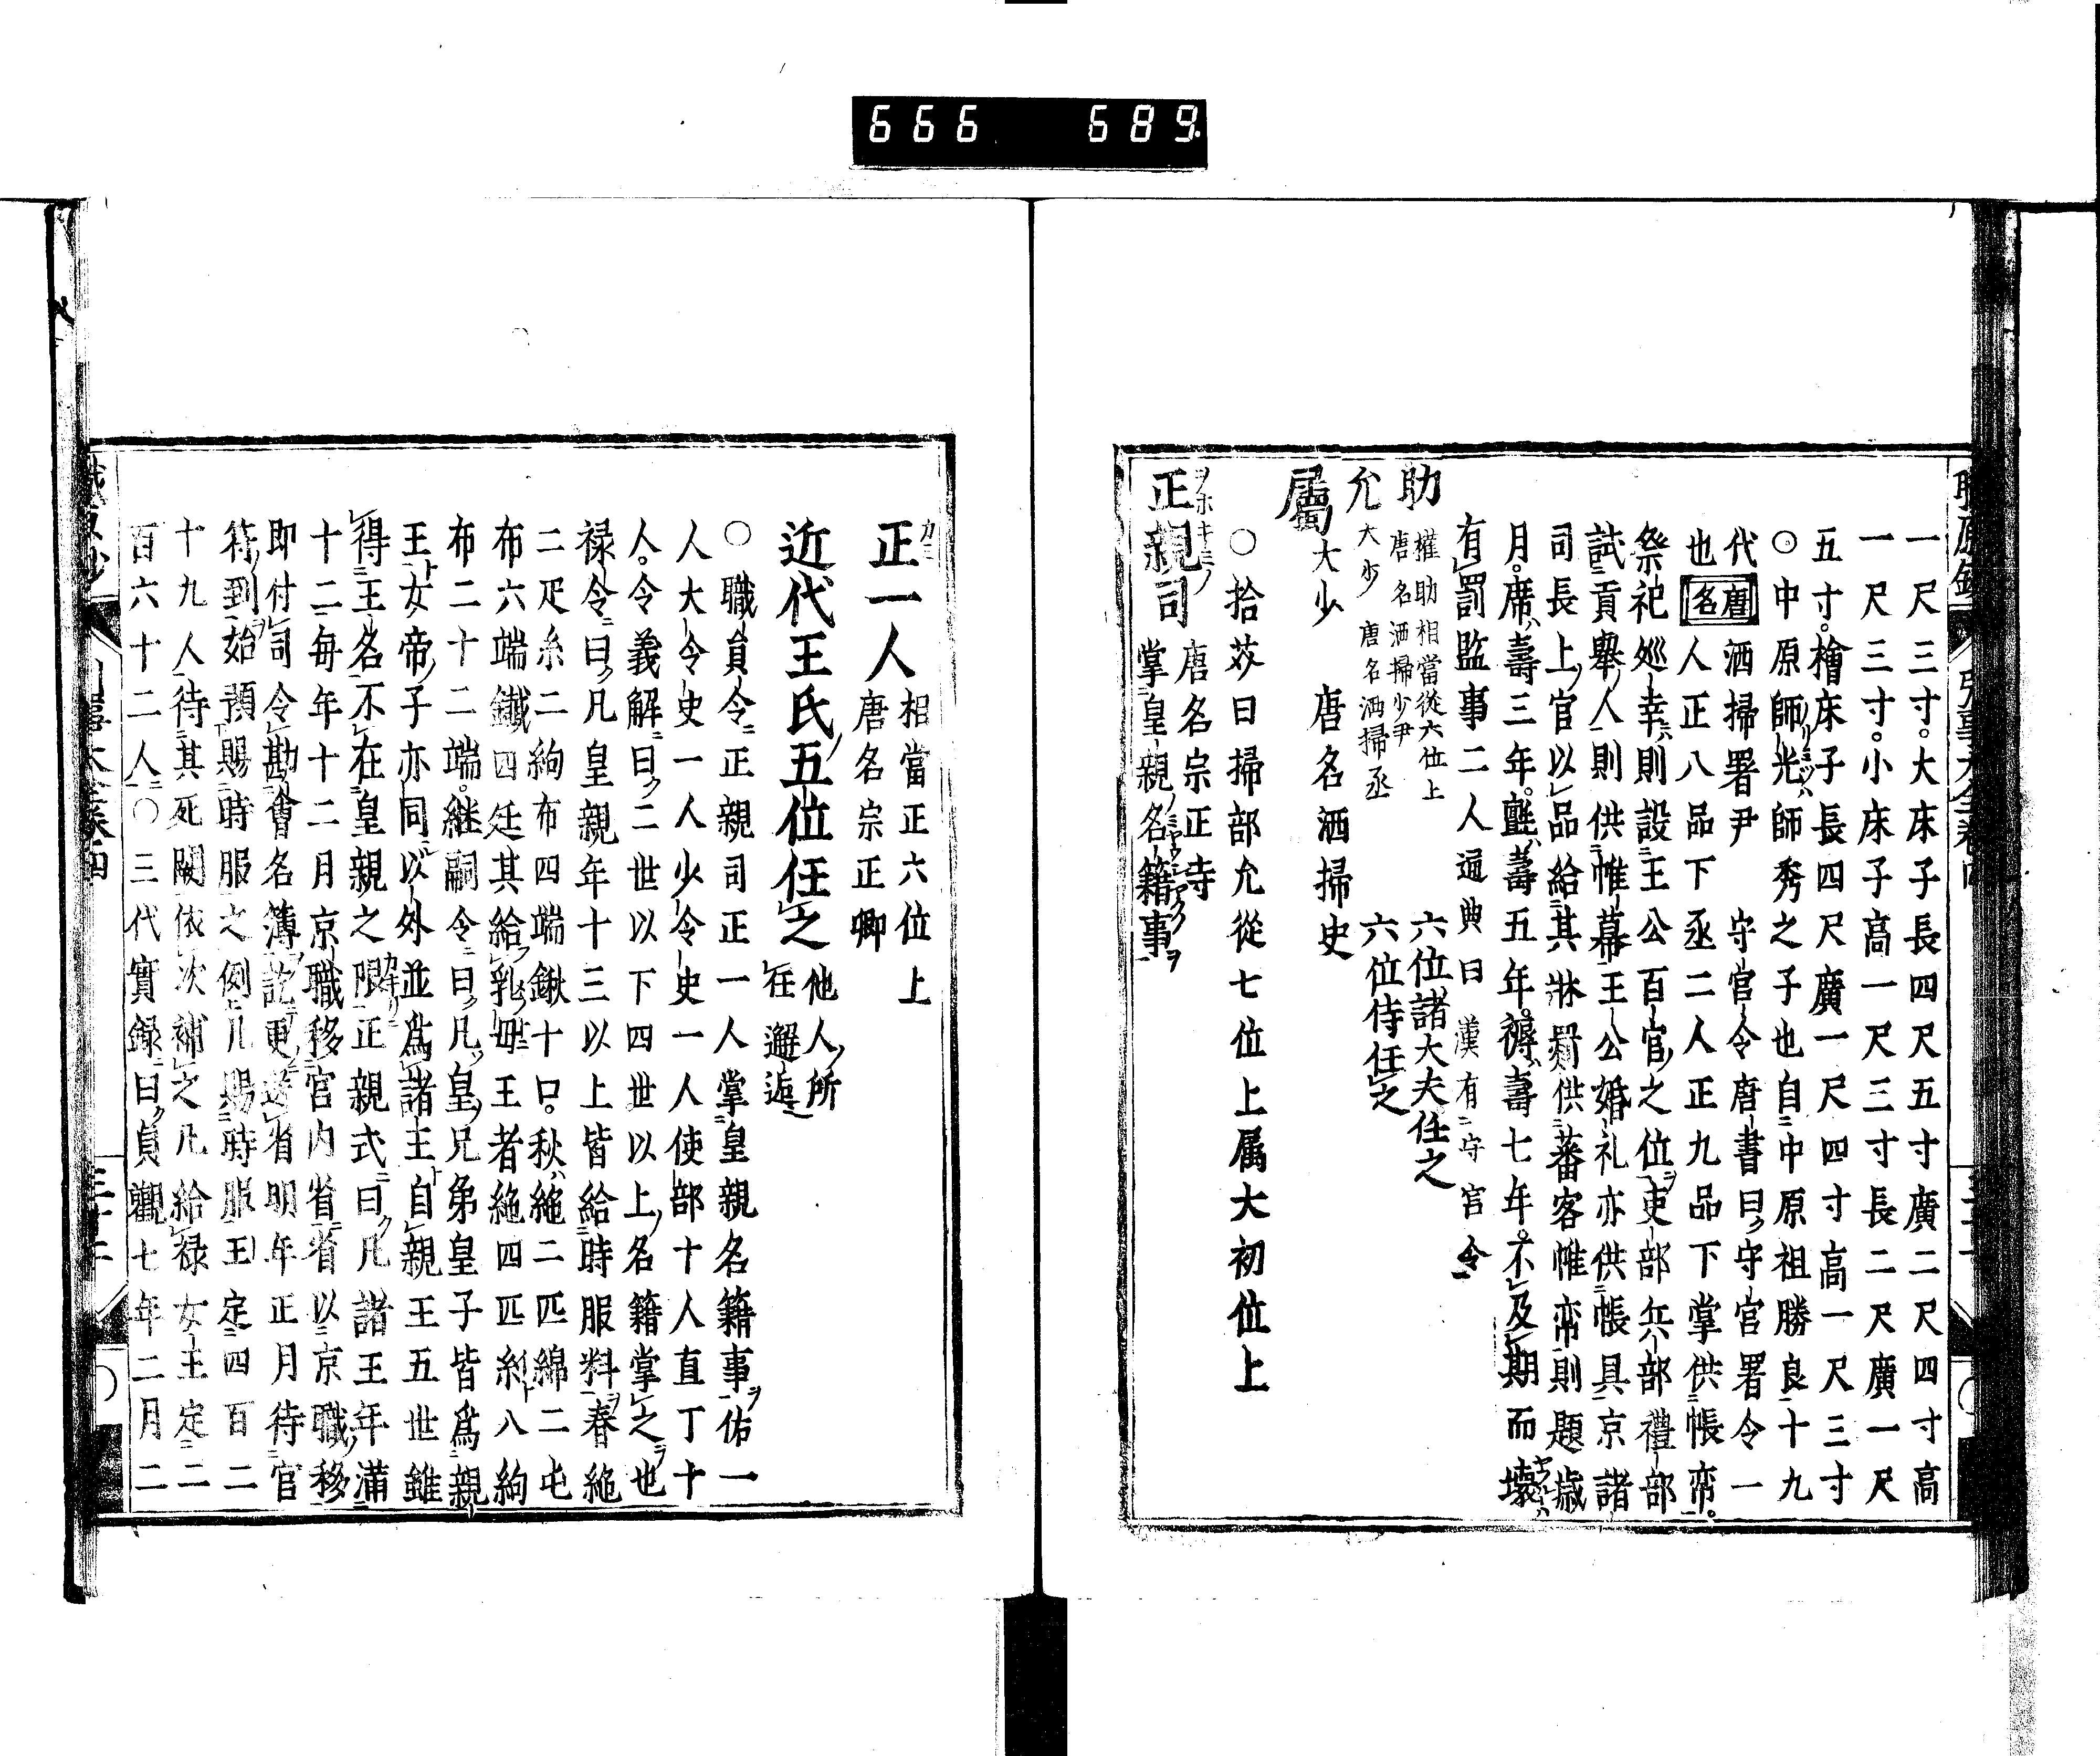 666 689
一尺三寸。大床子長四尺五寸廣二尺四寸高
一尺三寸。小床子高一尺三寸長二尺廣一尺
五寸。檜床子長四尺廣一尺四寸高一尺三寸
○中原師光師秀之子也自中原祖勝良十九
代 洒掃署尹 守官令唐書曰守宮署令一
也 唐名 人正八品下丞二人正九品下掌供帳帟。
祭祀巡幸則設王公百官之位吏部兵部禮部
試貢舉人則供帷幕王公婚礼亦供帳具京諸
司長上官以品給其牀罽供蕃客帷帟則題歳
月。席壽三年。氈壽五年。褥壽七年。不及期而壞
有罰監事二人通典曰漢有守宮令
助 權助相當從六位上 六位諸大夫任之
唐名洒掃少尹
允 大少 唐名洒掃丞 六位侍任之
屬 大少 唐名洒掃史
○拾芥曰掃部允從七位上属大初位上
正親司 唐名宗正寺
掌皇親名籍事
正一人 相當正六位上
唐名宗正卿
近代王氏五位任之 他人所
任邂逅
○職員令正親司正一人掌皇親名籍事佑一
人大令史一人少令史一人使部十人直丁十
人。令義解曰二世以下四世以上名籍掌之也
禄令曰凡皇親年十三以上皆給時服料春絁
二疋糸二絇布四端鍬十口。秋絁二匹綿二屯
布六端鐵四廷其給乳母王者絁四匹糸八絇
布二十二端。継嗣令曰凡皇兄弟皇子皆爲親
王女帝子亦同以外並爲諸王自親王五世雖
得王名不在皇親之限正親式曰凡諸王年満
十二毎年十二月京職移宮内省省以京職移
即付司令勘會名簿訖更送省明年正月待官
符到始預賜時服之例凡賜時服王定四百二
十九人待其死闕依次補之凡給禄女王定二
百六十二人○三代實録曰貞觀七年二月二